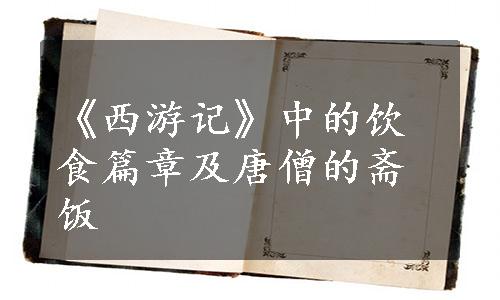 《西游记》中的饮
食篇章及唐僧的斋
饭